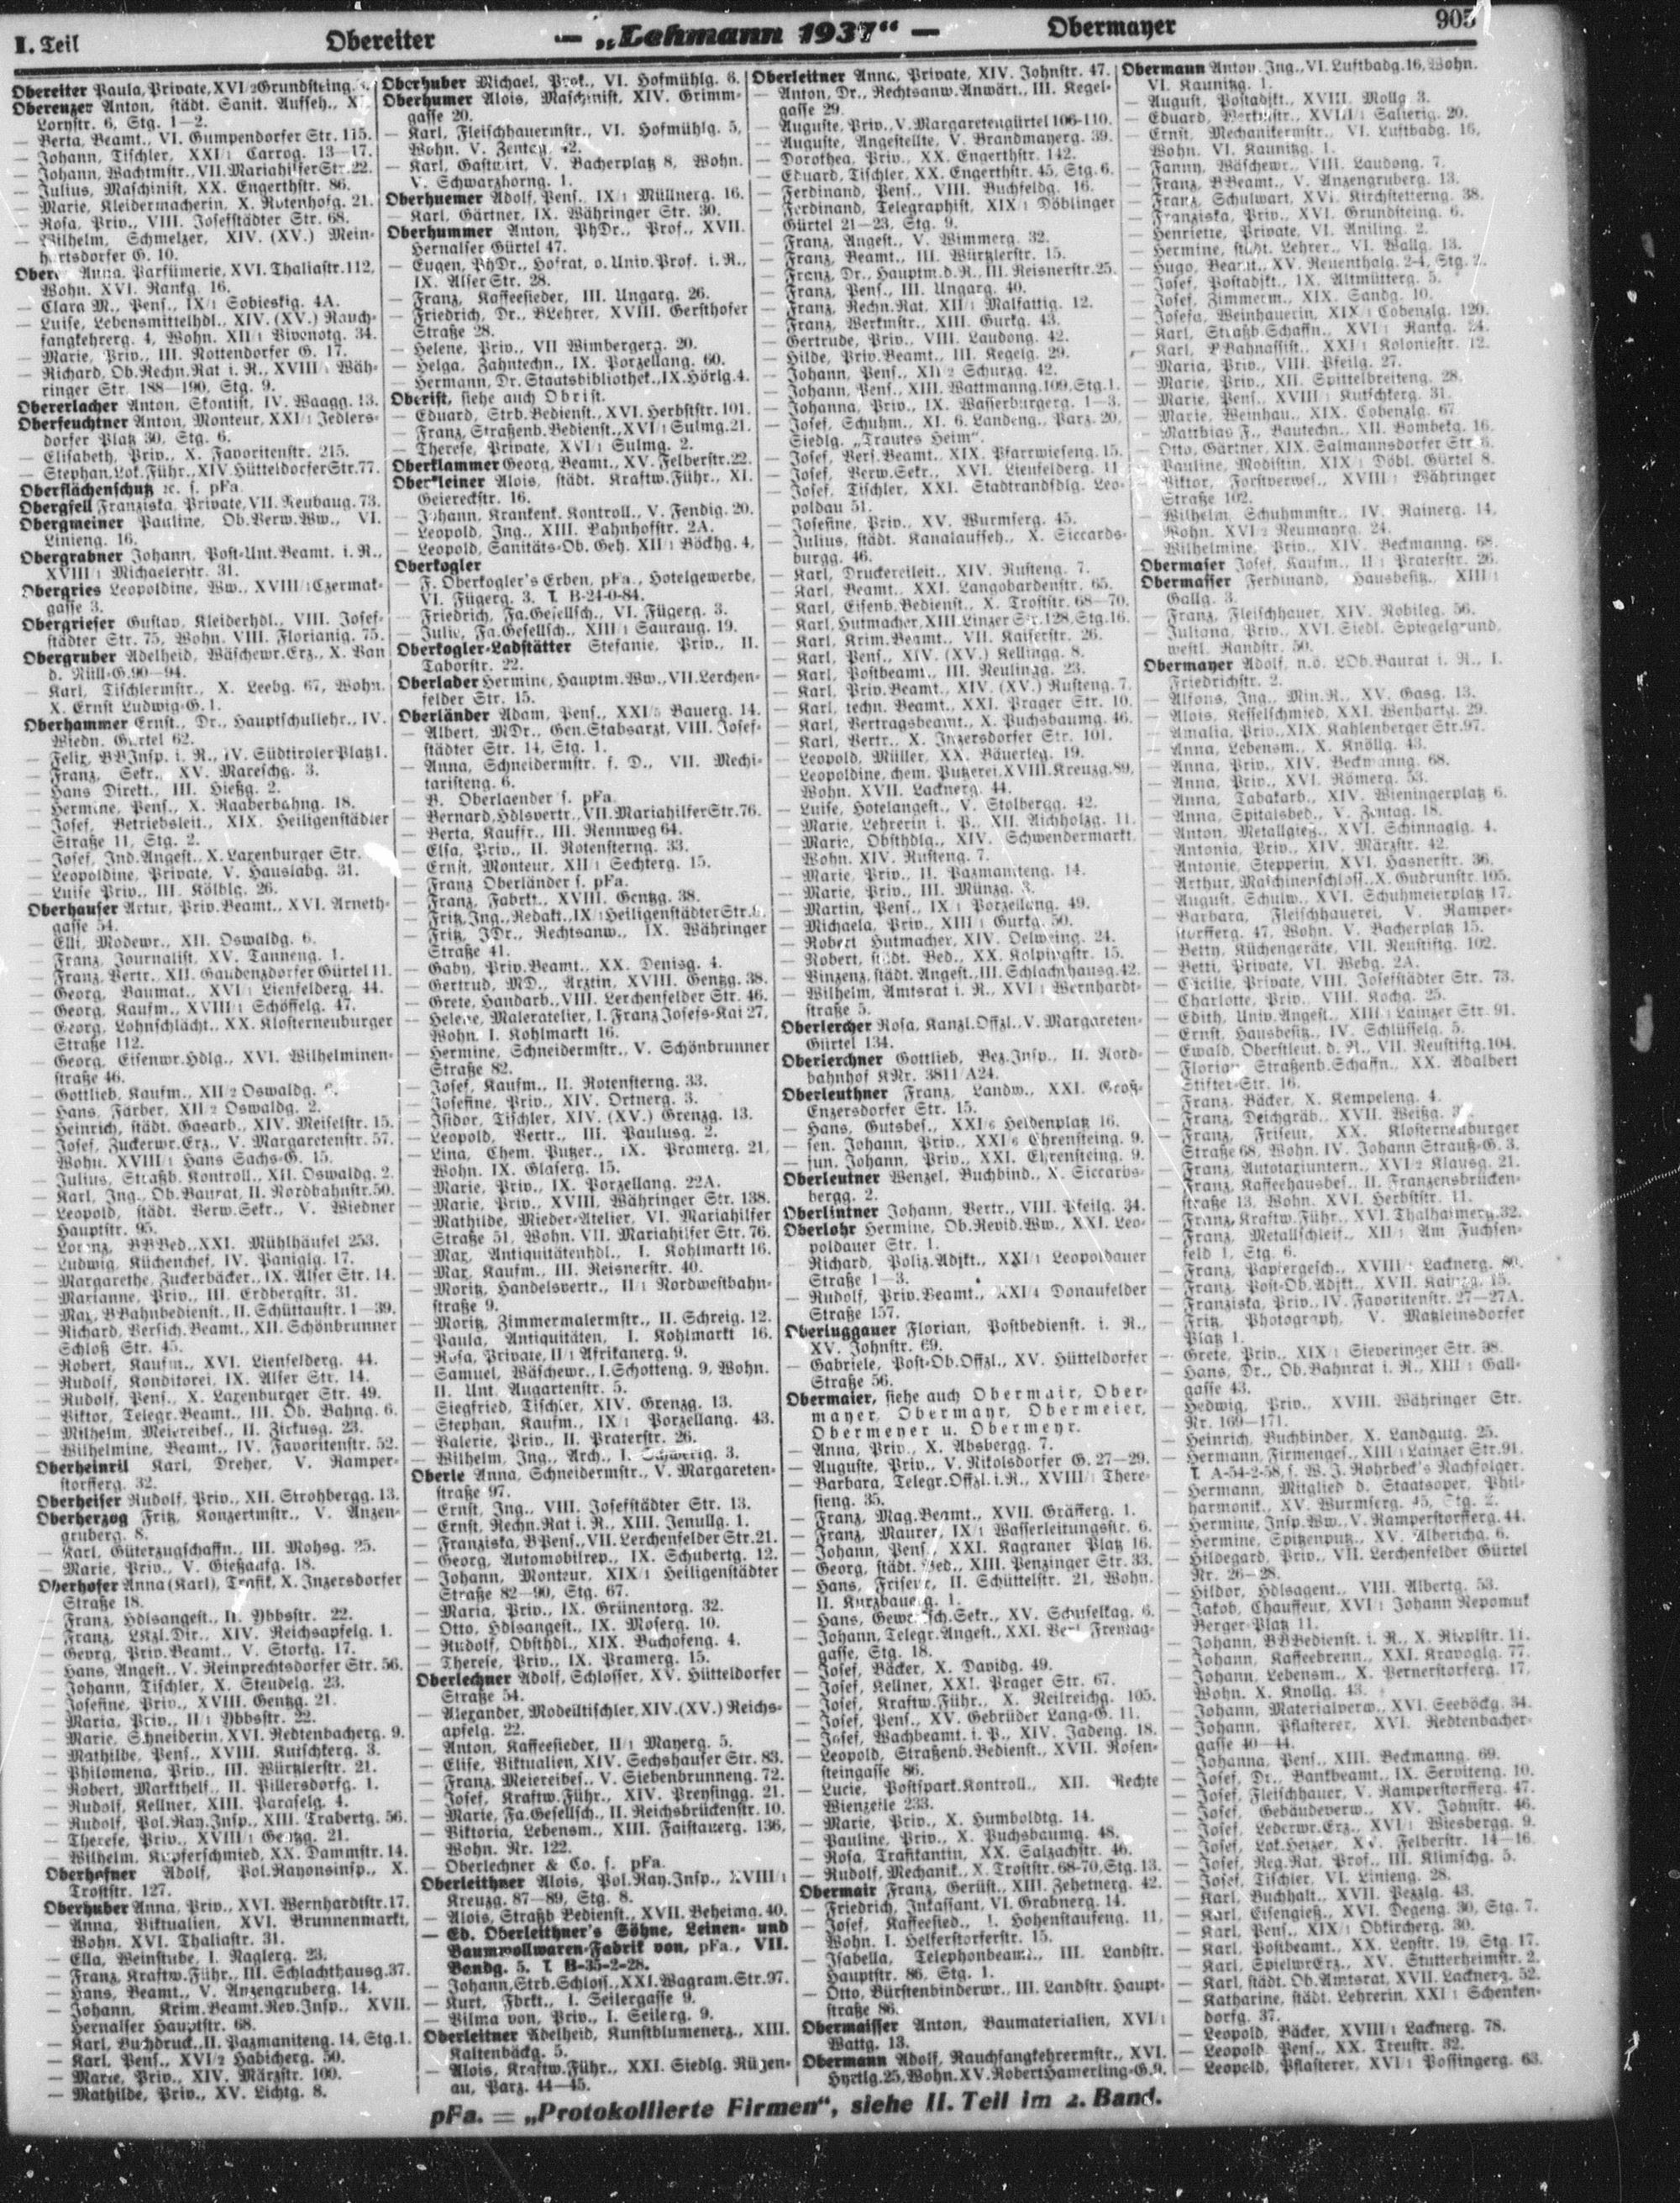 I. Teil
Obereiter
— „Lehmann 1937“ —
Obermayer
905
Obereiter Paula, Private, XVI/2 Grundsteing.
Oberenzer Anton, städt. Sanit. Auffseh., X.
Lorystr. 6, Stg. 1—2.
— Berta, Beamt., VI. Gumpendorfer Str. 115.
— Johann, Tischler, XXI/1 Carrog. 13—17.
— Johann, Wachtmstr., VII. Mariahilfer Str. 22.
— Julius, Maschinist, XX. Engerthstr. 86.
— Marie, Kleidermacherin, X. Rotenhofg. 21.
— Rosa, Priv., VIII. Josefstädter Str. 68.
— Wilhelm, Schmelzer, XIV. (XV.) Mein-
hartsdorfer G. 10.
Anna, Parfümerie, XVI. Thaliastr. 112,
Wohn. XVI. Rankg. 16.
— Clara M., Pens., IX/1 Sobieskig. 4A.
— Luise, Lebensmittelhdl., XIV. (XV.) Rauch-
fangkehrerg. 4, Wohn. XII/1 Vivenotg. 34.
— Marie, Priv., III. Rottendorfer G. 17.
— Richard, Ob.Rechn.Rat i. R., XVIII/1 Wäh-
ringer Str. 188—190, Stg. 9.
Obererlacher Anton, Skontist, IV. Waagg. 13.
Oberfeuchtner Anton, Monteur, XXI/1 Jedlers-
dorfer Platz 30, Stg. 6.
— Elisabeth, Priv., X. Favoritenstr. 215.
— Stephan, Lok.Führ., XIV. Hütteldorfer Str. 77.
Oberflächenschutz ec. s. pFa.
Obergfell Franziska, Private, VII. Neubaug. 73.
Obergmeiner Pauline, Ob.Verw.Ww., VI.
Linieng. 16.
Obergrabner Johann, Post-Unt.Beamt. i. R.,
XVIII/1 Michaelerstr. 31.
Obergries Leopoldine, Ww., XVIII/1 Czermak-
gasse 3.
Obergrieser Gustav, Kleiderhdl., VIII. Josef-
städter Str. 75, Wohn. VIII. Florianig. 75.
Obergruber Adelheid, Wäschewr.Erz., X. Van
d. Nüll-G. 90—94.
— Karl, Tischlermstr., X. Leebg. 67, Wohn.
X. Ernst Ludwig-G. 1.
Oberhammer Ernst., Dr., Hauptschullehr., IV.
Wiedn. Gürtel 62.
— Felix, BBInsp. i. R., IV. Südtiroler Platz 1.
— Franz, Sekr., XV. Mareschg. 3.
— Hans Direkt., III. Hießg. 2.
— Hermine, Pens., X. Raaberbahng. 18.
— Josef, Betriebsleit., XIX. Heiligenstädter
Straße 11, Stg. 2.
— Josef, Ind.Angest., X. Laxenburger Str.
— Leopoldine, Private, V. Hauslabg. 31.
— Luise Priv., III. Kölblg. 26.
Oberhauser Artur, Priv.Beamt., XVI. Arneth-
gasse 54.
— Elli, Modewr., XII. Oswaldg. 6.
— Franz, Journalist, XV. Tanneng. 1.
— Franz, Vertr., XII. Gaudenzdorfer Gürtel 11.
— Georg, Baumat., XVI/1 Lienfelderg. 44.
— Georg, Kaufm., XVIII/1 Schöffelg. 47.
— Georg, Lohnschlächt., XX. Klosterneuburger
Straße 112.
— Georg, Eisenwr.Hdlg., XVI. Wilhelminen-
straße 46.
— Gottlieb, Kaufm., XII/2 Oswaldg.
— Hans, Färber, XII/2 Oswaldg. 2.
— Heinrich, städt. Gasarb., XIV. Meiselstr. 15.
— Josef, Zuckerwr.Erz., V. Margaretenstr. 57,
Wohn. XVIII/1 Hans Sachs-G. 15.
— Julius, Straßb. Kontroll., XII. Oswaldg. 2.
— Karl, Ing., Ob.Baurat, II. Nordbahnstr. 50.
— Leopold, städt. Verw.Sekr., V. Wiedner
Hauptstr. 95.
— Lorenz, BBBed., XXI. Mühlhäufel 253.
— Ludwig, Küchenchef, IV. Paniglg. 17.
— Margarethe, Zuckerbäcker., IX. Alser Str. 14.
— Marianne, Priv., III. Erdbergstr. 31.
— Max, BBahnbedienst., II. Schüttaustr. 1—39.
— Richard, Versich.Beamt., XII. Schönbrunner
Schloß Str. 45.
— Robert, Kaufm., XVI. Lienfelderg. 44.
— Rudolf, Konditorei, IX. Alser Str. 14.
— Rudolf, Pens., X. Laxenburger Str. 49.
— Viktor, Telegr.Beamt., III. Ob. Bahng. 6.
— Wilhelm, Meiereibes., II. Zirkusg. 23.
— Wilhelmine, Beamt., IV. Favoritenstr. 52.
Oberheinril Karl, Dreher, V. Ramper-
storfferg. 32.
Oberheiser Rudolf, Priv., XII. Strohbergg. 13.
Oberherzog Fritz, Konzertmstr., V. Anzen-
gruberg. 8.
— Karl, Güterzugschaffn., III. Mohsg. 25.
— Marie, Priv., V. Gießaufg. 18.
Oberhofer Anna (Karl), Trafik, X. Inzersdorfer
Straße 18.
— Franz, Hdlsangest., II. Ybbsstr. 22.
— Franz, LKzl.Dir., XIV. Reichsapfelg. 1.
— Georg, Priv.Beamt., V. Storkg. 17.
— Hans, Angest., V. Reinprechtsdorfer Str. 56.
— Johann, Tischler, X. Steudelg. 23.
— Josefine, Priv., XVIII. Gentzg. 21.
— Maria, Priv., II/1 Ybbsstr. 22.
— Marie, Schneiderin, XVI. Redtenbacherg. 9.
— Mathilde, Pens., XVIII. Kutschkerg. 3.
— Philomena, Priv., III. Würtzlerstr. 21.
— Robert, Markthelf., II. Pillersdorfg. 1.
— Rudolf, Kellner, XIII. Paraselg. 4.
— Rudolf, Pol.Ray.Insp., XIII. Trabertg. 56.
— Therese, Priv., XVIII/1 Gentzg. 21.
— Wilhelm, Kupferschmied, XX. Dammstr. 14.
Oberhofner Adolf, Pol.Rayonsinsp., X.
Troststr. 127.
Oberhuber Anna, Priv., XVI. Wernhardtstr. 17.
— Anna, Viktualien, XVI. Brunnenmarkt,
Wohn. XVI. Thaliastr. 31.
— Ella, Weinstube, I. Naglerg. 23.
— Franz, Kraftw.Führ., III. Schlachthausg. 37.
— Hans, Beamt., V. Anzengruberg. 14.
— Johann, Krim.Beamt.Rev.Insp., XVII.
Hernalser Hauptstr. 68.
— Karl, Buchdruck., II. Pazmaniteng. 14, Stg. 1.
— Karl, Pens., XVI/2 Habicherg. 50.
— Marie, Priv., XIV. Märzstr. 100.
— Mathilde, Priv., XV. Lichtg. 8.
Oberhuber Michael, Prok., VI. Hofmühlg. 6.
Oberhumer Alois, Maschinist, XIV. Grimm-
gasse 20.
— Karl, Fleischhauermstr., VI. Hofmühlg. 5,
Wohn. V. Zentag. 42.
— Karl, Gastwirt, V. Bacherplatz 8, Wohn.
V. Schwarzhorng. 1.
Oberhuemer Adolf, Pens., IX/1 Müllnerg. 16.
— Karl, Gärtner, IX. Währinger Str. 30.
Oberhummer Anton, PhDr., Prof., XVII.
Hernalser Gürtel 47.
— Eugen, PhDr., Hofrat, o. Univ.Prof. i. R.,
IX. Alser Str. 28.
— Franz, Kaffeesieder, III. Ungarg. 26.
— Friedrich, Dr., BLehrer, XVIII. Gersthofer
Straße 28.
— Helene, Priv., VII Wimbergerg. 20.
— Helga, Zahntechn., IX. Porzellang. 60.
— Hermann, Dr. Staatsbibliothek., IX. Hörlg. 4.
Oberist, siehe auch Obrist.
— Eduard, Strb.Bedienst., XVI. Herbststr. 101.
— Franz, Straßenb.Bedienst., XVI/1 Sulmg. 21.
— Therese, Private, XVI/1 Sulmg. 2.
Oberklammer Georg, Beamt., XV. Felberstr. 22.
Oberkleiner Alois, städt. Kraftw.Führ., XI.
Geiereckstr. 16.
— Johann, Krankenk. Kontroll., V. Fendig. 20.
— Leopold, Ing., XIII. Bahnhofstr. 2A.
— Leopold, Sanitäts-Ob. Geh. XII/1 Böckhg. 4,
Oberkogler
— F. Oberkogler's Erben, pFa., Hotelgewerbe,
VI. Fügerg. 3. T. B-24-0-84.
— Friedrich, Fa.Gesellsch., VI. Fügerg. 3.
— Julie, Fa.Gesellsch., XIII/1 Sauraug. 19.
Oberkogler-Ladstätter Stefanie, Priv., II.
Taborstr. 22.
Oberlader Hermine, Hauptm.Ww., VII. Lerchen-
felder Str. 15.
Oberländer Adam, Pens., XXI/5 Bauerg. 14.
— Albert, MDr., Gen.Stabsarzt, VIII. Josef-
städter Str. 14, Stg. 1.
— Anna, Schneidermstr. f. D., VII. Mechi-
taristeng. 6.
— B. Oberlaender s. pFa.
— Bernard, Hdlsvertr., VII. Mariahilfer Str. 76.
— Berta, Kauffr., III. Rennweg 64.
— Elsa, Priv., II. Rotensterng. 33.
— Ernst, Monteur, XII/1 Sechterg. 15.
— Franz Oberländer s. pFa.
— Franz, Fabrkt., XVIII. Gentzg. 38.
— Fritz, Ing., Redakt., IX/1 Heiligenstädter Str.
— Fritz, JDr., Rechtsanw., IX. Währinger
Straße 41.
— Gaby, Priv.Beamt., XX. Denisg. 4.
— Gertrud, MD., Ärztin, XVIII. Gentzg. 38.
— Grete, Handarb., VIII. Lerchenfelder Str. 46.
— Helene, Maleratelier, I. Franz Josefs-Kai 27,
Wohn. I. Kohlmarkt 16.
— Hermine, Schneidermstr., V. Schönbrunner
Straße 82.
— Josef, Kaufm., II. Rotensterng. 33.
— Josefine, Priv., XIV. Ortnerg. 3.
— Isidor, Tischler, XIV. (XV.) Grenzg. 13.
— Leopold, Vertr., III. Paulusg. 2.
— Lina, Chem. Putzer., IX. Pramerg. 21,
Wohn. IX. Glaserg. 15.
— Marie, Priv., IX. Porzellang. 22A.
— Marie, Priv., XVIII. Währinger Str. 138.
— Mathilde, Mieder-Atelier, VI. Mariahilfer
Straße 51, Wohn. VII. Mariahilfer Str. 76.
— Max, Antiquitätenhdl., I. Kohlmarkt 16.
— Max, Kaufm., III. Reisnerstr. 40.
— Moritz, Handelsvertr., II/1 Nordwestbahn-
straße 9.
— Moritz, Zimmermalermstr., II. Schreig. 12.
— Paula, Antiquitäten, I. Kohlmarkt 16.
— Rosa, Private, II/1 Afrikanerg. 9.
— Samuel, Wäschewr., I. Schotteng. 9, Wohn.
II. Unt. Augartenstr. 5.
— Siegfried, Tischler, XIV. Grenzg. 13.
— Stephan, Kaufm., IX/1 Porzellang. 43.
— Valerie, Priv., II. Praterstr. 26.
— Wilhelm, Ing., Arch., I. Schwertg. 3.
Oberle Anna, Schneidermstr., V. Margareten-
straße 97.
— Ernst, Ing., VIII. Josefstädter Str. 13.
— Ernst, Rechn.Rat i. R., XIII. Jenullg. 1.
— Franziska, BPens., VII. Lerchenfelder Str. 21.
— Georg, Automobilrep., IX. Schubertg. 12.
— Johann, Monteur, XIX/1 Heiligenstädter
Straße 82—90, Stg. 67.
— Maria, Priv., IX. Grünentorg. 32.
— Otto, Hdlsangest., IX. Moserg. 10.
— Rudolf, Obsthdl., XIX. Bachofeng. 4.
— Therese, Priv., IX. Pramerg. 15.
Oberlechner Adolf, Schlosser, XV. Hütteldorfer
Straße 54.
— Alexander, Modelltischler, XIV. (XV.) Reichs-
apfelg. 22.
— Anton, Kaffeesieder, II/1 Mayerg. 5.
— Elise, Viktualien, XIV. Sechshauser Str. 83.
— Franz, Meiereibes., V. Siebenbrunneng. 72.
— Josef, Kraftw.Führ., XIV. Preysingg. 21.
— Marie, Fa.Gesellsch., II. Reichsbrückenstr. 10.
— Viktoria, Lebensm., XIII. Faistauerg. 136,
Wohn. Nr. 122.
— Oberlechner & Co. s. pFa.
Oberleithner Alois, Pol.Ray.Insp., XVIII/1
Kreuzg. 87—89, Stg. 8.
— Alois, Straßb Bedienst., XVII. Beheimg. 40.
— Ed. Oberleithner's Söhne, Leinen- und
Baumwollwaren-Fabrik von, pFa., VII.
Bandg. 5. T. B-35-2-28.
— Johann, Strb.Schloss., XXI. Wagram.Str. 97.
— Kurt, Fbrkt., I. Seilergasse 9.
— Vilma von, Priv., I. Seilerg. 9.
Oberleitner Adelheid, Kunstblumenerz., XIII.
Kaltenbäckg. 5.
— Alois, Kraftw.Führ., XXI. Siedlg. Rügen-
au, Parz. 44—45.
Oberleitner Anna, Private, XIV. Johnstr. 47.
— Anton, Dr., Rechtsanw.Anwärt., III. Kegel-
gasse 29.
— Auguste, Priv., V. Margaretengürtel 106-110.
— Auguste, Angestellte, V. Brandmayerg. 39.
— Dorothea, Priv., XX. Engerthstr. 142.
— Eduard, Tischler, XX. Engerthstr. 45, Stg. 6.
— Ferdinand, Pens., VIII. Buchfeldg. 16.
— Ferdinand, Telegraphist, XIX/1 Döblinger
Gürtel 21—23, Stg. 9.
— Franz, Angest., V. Wimmerg. 32.
— Franz, Beamt., III. Würtzlerstr. 15.
— Franz, Dr., Hauptm.d.R., III. Reisnerstr. 25.
— Franz, Pens., III. Ungarg. 40.
— Franz, Rechn.Rat, XII/1 Malfattig. 12.
— Franz, Werkmstr., XIII. Gurkg. 43.
— Gertrude, Priv., VIII. Laudong. 42.
— Hilde, Priv.Beamt., III. Kegelg. 29.
— Johann, Pens., XII/2 Schurzg. 42.
— Johann, Pens., XIII. Wattmanng. 109, Stg. 1.
— Johanna, Priv., IX. Wasserburgerg. 1—3.
— Josef, Schuhm., XI. 6. Landeng., Parz. 20,
Siedlg. „Trautes Heim“.
— Josef, Vers.Beamt., XIX. Pfarrwieseng. 15.
— Josef, Verw.Sekr., XVI. Lienfelderg. 11
— Josef, Tischler, XXI. Stadtrandsdlg. Leo-
poldau 51.
— Josefine, Priv., XV. Wurmserg. 45.
— Julius, städt. Kanalaufseh., X. Siccards-
burgg. 46.
— Karl, Druckereileit., XIV. Rusteng. 7.
— Karl, Beamt., XXI. Langobardenstr. 65.
— Karl, Eisenb.Bedienst., X. Troststr. 68—70.
— Karl, Hutmacher, XIII. Linzer Str. 128, Stg. 16.
— Karl, Krim.Beamt., VII. Kaiserstr. 26.
— Karl, Pens., XIV. (XV.) Kellingg. 8.
— Karl, Postbeamt., III. Neulingg. 23.
— Karl, Priv.Beamt., XIV. (XV.) Rusteng. 7.
— Karl, techn. Beamt., XXI. Prager Str. 10.
— Karl, Vertragsbeamt., X. Puchsbaumg. 46.
— Karl, Vertr., X. Inzersdorfer Str. 101.
— Leopold, Müller, XX. Bäuerleg. 19.
— Leopoldine, chem. Putzerei, XVIII. Kreuzg. 89,
Wohn. XVII. Lacknerg. 44.
— Luise, Hotelangest., V. Stolbergg. 42.
— Marie, Lehrerin i. P., XII. Aichholzg. 11.
— Marie, Obsthdlg., XIV. Schwendermarkt,
Wohn. XIV. Rusteng. 7.
— Marie, Priv., II. Pazmaniteng. 14.
— Marie, Priv., III. Münzg. 3.
— Martin, Pens., IX/1 Porzellang. 49.
— Michaela, Priv., XIII/1 Gurkg. 50.
— Robert Hutmacher, XIV. Oelweing. 24.
— Robert, städt. Bed., XX. Kolpingstr. 15.
— Vinzenz, städt. Angest., III. Schlachthausg. 42.
— Wilhelm, Amtsrat i. R., XVI/1 Wernhardt-
straße 5.
Oberlercher Rosa, Kanzl.Offzl., V. Margareten-
Gürtel 134.
Oberlerchner Gottlieb, Bez.Insp., II. Nord-
bahnhof KNr. 3811/A24.
Oberleuthner Franz, Landw., XXI. Groß-
Enzersdorfer Str. 15.
— Hans, Gutsbes., XXI/6 Heldenplatz 16.
— sen. Johann, Priv., XXI/6 Ehrensteing. 9.
— jun. Johann, Priv., XXI. Ehrensteing. 9.
Oberleutner Wenzel, Buchbind., X. Siccards-
bergg. 2.
Oberlintner Johann, Vertr., VIII. Pfeilg. 34.
Oberlohr Hermine, Ob.Revid.Ww., XXI. Leo-
poldauer Str. 1.
— Richard, Poliz.Adjkt., XXI/1 Leopoldauer
Straße 1—3.
— Rudolf, Priv.Beamt., XXI/4 Donaufelder
Straße 157.
Oberluggauer Florian, Postbedienst. i. R.,
XV. Johnstr. 69.
— Gabriele, Post-Ob.Offzl., XV. Hütteldorfer
Straße 56.
Obermaier, siehe auch Obermair, Ober-
mayer, Obermayr, Obermeier,
Obermeyer u. Obermeyr.
— Anna, Priv., X. Absbergg. 7.
— Auguste, Priv., V. Nikolsdorfer G. 27—29.
— Barbara, Telegr.Offzl. i. R., XVIII/1 There-
sieng. 35.
— Franz, Mag.Beamt., XVII. Gräfferg. 1.
— Franz, Maurer, IX/1 Wasserleitungsstr. 6.
— Johann, Pens., XXI. Kagraner Platz 16.
— Georg, städt. Bed., XIII. Penzinger Str. 33.
— Hans, Friseur, II. Schüttelstr. 21, Wohn.
II. Kurzbauerg. 1.
— Hans, Gewerksch.Sekr., XV. Schuselkag. 6.
— Johann, Telegr.Angest., XXI. Verl. Freytag-
gasse, Stg. 18.
— Josef, Bäcker, X. Davidg. 49.
— Josef, Kellner, XXI. Prager Str. 67.
— Josef, Kraftw.Führ., X. Neilreichg. 105.
— Josef, Pens., XV. Gebrüder Lang-G. 11.
— Josef, Wachbeamt. i. P., XIV. Jadeng. 18.
— Leopold, Straßenb.Bedienst., XVII. Rosen-
steingasse 86.
— Lucie, Postspark.Kontroll., XII. Rechte
Wienzeile 233.
— Marie, Priv., X. Humboldtg. 14.
— Pauline, Priv., X. Puchsbaumg. 48.
— Rosa, Trafikantin, XX. Salzachstr. 46.
— Rudolf, Mechanik., X. Troststr. 68-70, Stg. 13.
Obermair Franz, Gerüst., XIII. Zehetnerg. 42.
— Friedrich, Inkassant, VI. Grabnerg. 14.
— Josef, Kaffeesied., I. Hohenstaufeng. 11,
Wohn. I. Helferstorferstr. 15.
— Isabella, Telephonbeamt., III. Landstr.
Hauptstr. 86, Stg. 1.
— Otto, Bürstenbinderwr., III. Landstr. Haupt-
straße 86.
Obermaisser Anton, Baumaterialien, XVI/1
Wattg. 13.
Obermann Adolf, Rauchfangkehrermstr., XVI.
Hyrtlg. 25, Wohn. XV. Robert Hamerling-G. 9.
Obermann Anton, Ing., VI. Luftbadg. 16, Wohn.
VI. Kaunitzg. 1.
— August, Postadjkt., XVIII. Mollg. 3.
— Eduard, Werkmstr., XVIII/1 Salierig. 20.
— Ernst, Mechanikermstr., VI. Luftbadg. 16,
Wohn. VI. Kaunitzg. 1.
— Fanny, Wäschewr., VIII. Laudong. 7.
— Franz, BBeamt., V. Anzengruberg. 13.
— Franz, Schulwart, XVI. Kirchstetterng. 38.
— Franziska, Priv., XVI. Grundsteing. 6.
— Henriette, Private, VI. Aniling. 2.
— Hermine, städt. Lehrer., VI. Wallg. 13.
— Hugo, Beamt., XV. Reuenthalg. 2-4, Stg. 2.
— Josef, Postadjkt., IX. Altmütterg. 5.
— Josef, Zimmerm., XIX. Sandg. 10.
— Josefa, Weinhauerin, XIX/1 Cobenzlg. 120.
— Karl, Straßb.Schaffn., XVI/1 Rankg. 24.
— Karl, BBahnassist., XXI/1 Koloniestr. 12.
— Maria, Priv., VIII. Pfeilg. 27.
— Marie, Priv., XII. Spittelbreiteng. 28.
— Marie, Pens., XVIII/1 Kutschkerg. 31.
— Marie, Weinhau., XIX. Cobenzlg. 67.
— Matthias F., Bautechn., XII. Bombekg. 16.
— Otto, Gärtner, XIX. Salmannsdorfer Str. 6.
— Pauline, Modistin, XIX/1 Döbl. Gürtel 8.
— Viktor, Forstverwes., XVIII/1 Währinger
Straße 102.
— Wilhelm, Schuhmmstr., IV. Rainerg. 14,
Wohn. XVI/2 Neumayrg. 24.
— Wilhelmine, Priv., XIV. Beckmanng. 68.
Obermaser Josef, Kaufm., II/1 Praterstr. 26.
Obermasser Ferdinand, Hausbesitz., XIII/1
Gallg. 3.
— Franz, Fleischhauer, XIV. Nobileg. 56.
— Juliana, Priv., XVI. Siedl. Spiegelgrund,
westl. Randstr. 50.
Obermayer Adolf, n.ö. LOb.Baurat i. R., I.
Friedrichstr. 2.
— Alfons, Ing., Min.R., XV. Gasg. 13.
— Alois, Kesselschmied, XXI. Wenhartg. 29.
— Amalia, Priv., XIX. Kahlenberger Str. 97.
— Anna, Lebensm., X. Knöllg. 43.
— Anna, Priv., XIV. Beckmanng. 68.
— Anna, Priv., XVI. Römerg. 53.
— Anna, Tabakarb., XIV. Wieningerplatz 6.
— Anna, Spitalsbed., V. Zentag. 18.
— Anton, Metallgieß., XVI. Schinnaglg. 4.
— Antonia, Priv., XIV. Märzstr. 42.
— Antonie, Stepperin, XVI. Hasnerstr. 36.
— Arthur, Maschinenschloss., X. Gudrunstr. 105.
— August, Schulw., XVI. Schuhmeierplatz 17.
— Barbara, Fleischhauerei, V. Ramper-
storfferg. 47, Wohn. V. Bacherplatz 15.
— Betty, Küchengeräte, VII. Neustiftg. 102.
— Betti, Private, VI. Webg. 2A.
— Cäcilie, Private, VIII. Josefstädter Str. 73.
— Charlotte, Priv., VIII. Kochg. 25.
— Edith, Univ.Angest., XIII/1 Lainzer Str. 91.
— Ernst, Hausbesitz., IV. Schlüsselg. 5.
— Ewald, Oberstleut. d. R., VII. Neustiftg. 104.
— Florian Straßenb.Schaffn., XX. Adalbert
Stifter-Str. 16.
— Franz, Bäcker, X. Kempeleng. 4.
— Franz, Deichgräb., XVII. Weißg.
— Franz, Friseur, XX. Klosterneuburger
Straße 68, Wohn. IV. Johann Strauß-G. 3.
— Franz, Autotariuntern., XVI/2 Klausg. 21.
— Franz, Kaffeehausbes., II. Franzensbrücken-
straße 13, Wohn. XVI. Herbststr. 11.
— Franz, Kraftw.Führ., XVI. Thalhaimerg. 32.
— Franz, Metallschleif., XII/1 Am Fuchsen-
feld 1, Stg. 6.
— Franz, Papiergesch., XVIII/1 Lacknerg. 80.
— Franz, Post-Ob.Adjkt., XVII. Kainzg. 15.
— Franziska, Priv., IV. Favoritenstr. 27—27A.
— Fritz, Photograph, V. Matzleinsdorfer
Platz 1.
— Grete, Priv., XIX/1 Sieveringer Str. 98.
— Hans, Dr., Ob.Bahnrat i. R., XIII/1 Gall-
gasse 43.
— Hedwig, Priv., XVIII. Währinger Str.
Nr. 169—171.
— Heinrich, Buchbinder, X. Landgutg. 25.
— Hermann, Firmenges., XIII/1 Lainzer Str. 91.
T. A-54-2-58, s. W. J. Rohrbeck's Nachfolger.
— Hermann, Mitglied d. Staatsoper, Phil-
harmonik., XV. Wurmserg. 45, Stg. 2.
— Hermine, Insp.Ww., V. Ramperstorfferg. 44.
— Hermine, Spitzenputz., XV. Alberichg. 6.
— Hildegard, Priv., VII. Lerchenfelder Gürtel
Nr. 26—28.
— Hildor, Hdlsagent., VIII. Albertg. 53.
— Jakob, Chauffeur, XVI/1 Johann Nepomuk
Berger-Platz 11.
— Johann, BBBedienst. i. R., X. Rieplstr. 11.
— Johann, Kaffeebrenn., XXI. Kravoglg. 77.
— Johann, Lebensm., X. Pernerstorferg. 17,
Wohn. X. Knollg. 43.
— Johann, Materialverw., XVI. Seeböckg. 34.
— Johann, Pflasterer, XVI. Redtenbacher-
gasse 40—44.
— Johanna, Pens., XIII. Beckmanng. 69.
— Josef, Dr., Bankbeamt., IX. Serviteng. 10.
— Josef, Fleischhauer, V. Ramperstorfferg. 47.
— Josef, Gebäudeverw., XV. Johnstr. 46.
— Josef, Lederwr.Erz., XVI/1 Wiesbergg. 9.
— Josef, Lok.Heizer, XV. Felberstr. 14—16.
— Josef, Reg.Rat, Prof., III. Klimschg. 5.
— Josef, Tischler, VI. Linieng. 28.
— Karl, Buchhalt., XVII. Pezzlg. 43.
— Karl, Eisengieß., XVI. Degeng. 30, Stg. 7.
— Karl, Pens., XIX/1 Obkircherg. 30.
— Karl, Postbeamt., XX. Leystr. 19, Stg. 17.
— Karl, SpielwrErz., XV. Stutterheimstr. 2.
— Karl, städt. Ob.Amtsrat, XVII. Lacknerg. 52.
— Katharine, städt. Lehrerin, XXI/1 Schenken-
dorfg. 37.
— Leopold, Bäcker, XVIII/1 Lacknerg. 78.
— Leopold Pens., XX. Treustr. 32.
— Leopold, Pflasterer, XVI/1 Possingerg. 63.
pFa. = „Protokollierte Firmen“, siehe II. Teil im 2. Band.